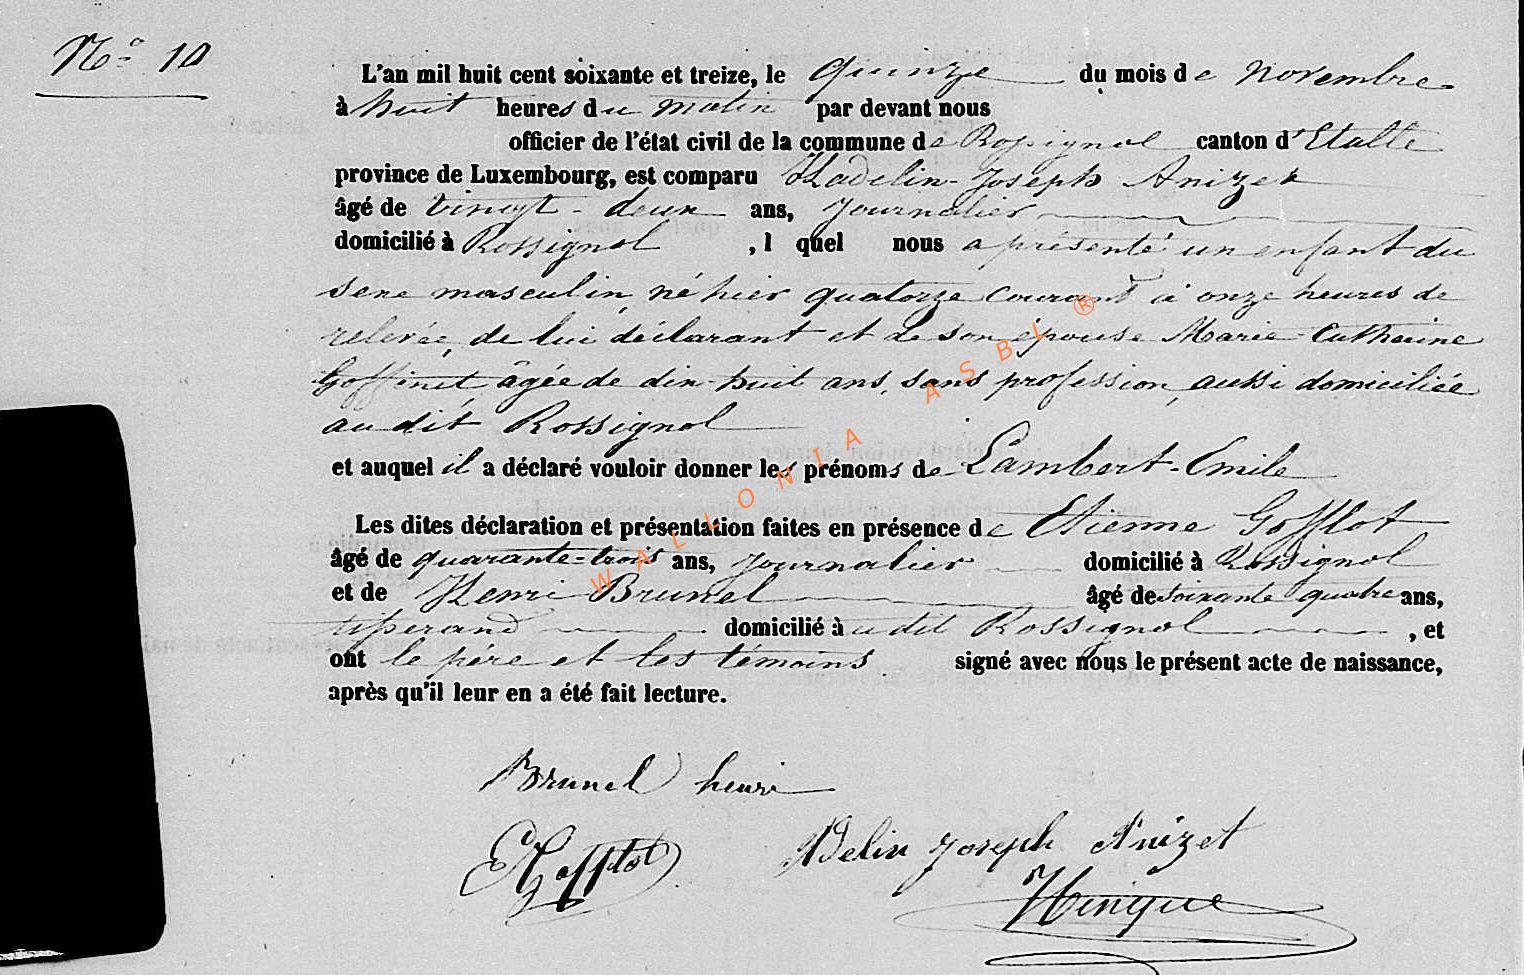 N° 10
L'an mil huit cent soixante et treize, le quinze du mois de novembre
à huit heures du matin par devant nous
officier de l'état civil de la commune de Rossignol canton d'Etalle
province de Luxembourg, est comparu Hadelin-Joseph Anizet
âgé de vingt-deux ans, journalier
domicilié à Rossignol , l quel nous a présenté un enfant du
sexe masculin, né hier quatorze courant à onze heures de
relevée, de lui déclarant et de son épouse Marie-Catherine
Goffinet âgée de dix-huit ans, sans profession, aussi domiciliée
au dit Rossignol
et auquel il a déclaré vouloir donner les prénoms de Lambert-Emile
Les dites déclaration et présentation faites en présence de Etienne Gofflot
âgé de quarante-trois ans, journalier domicilié à Rossignol
et de Henri Brunel âgé de soixante quatre ans,
tisserand domicilié à u dit Rossignol , et
ont le père et les témoins signé avec nous le présent acte de naissance,
après qu'il leur en a été fait lecture.
Brunel henri
E Gofflot
Adelin Joseph Anizet
Hinque
WALLONIA ASBL ®